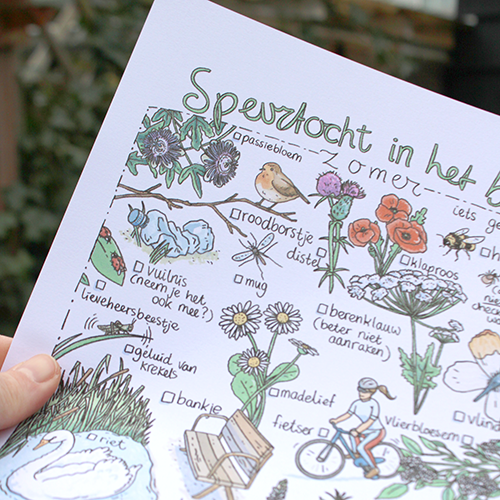 Speurtocht in het
zomer
passiebloem
roodborstje
distel
klaproos
iets
vuilnis
(neem je het
ook mee?)
mug
lieveheersbeestje
berenklauw
(beter niet
aanraken)
geluid van
krekels
madelief
bankje
fietser
vlierbloesem
riet